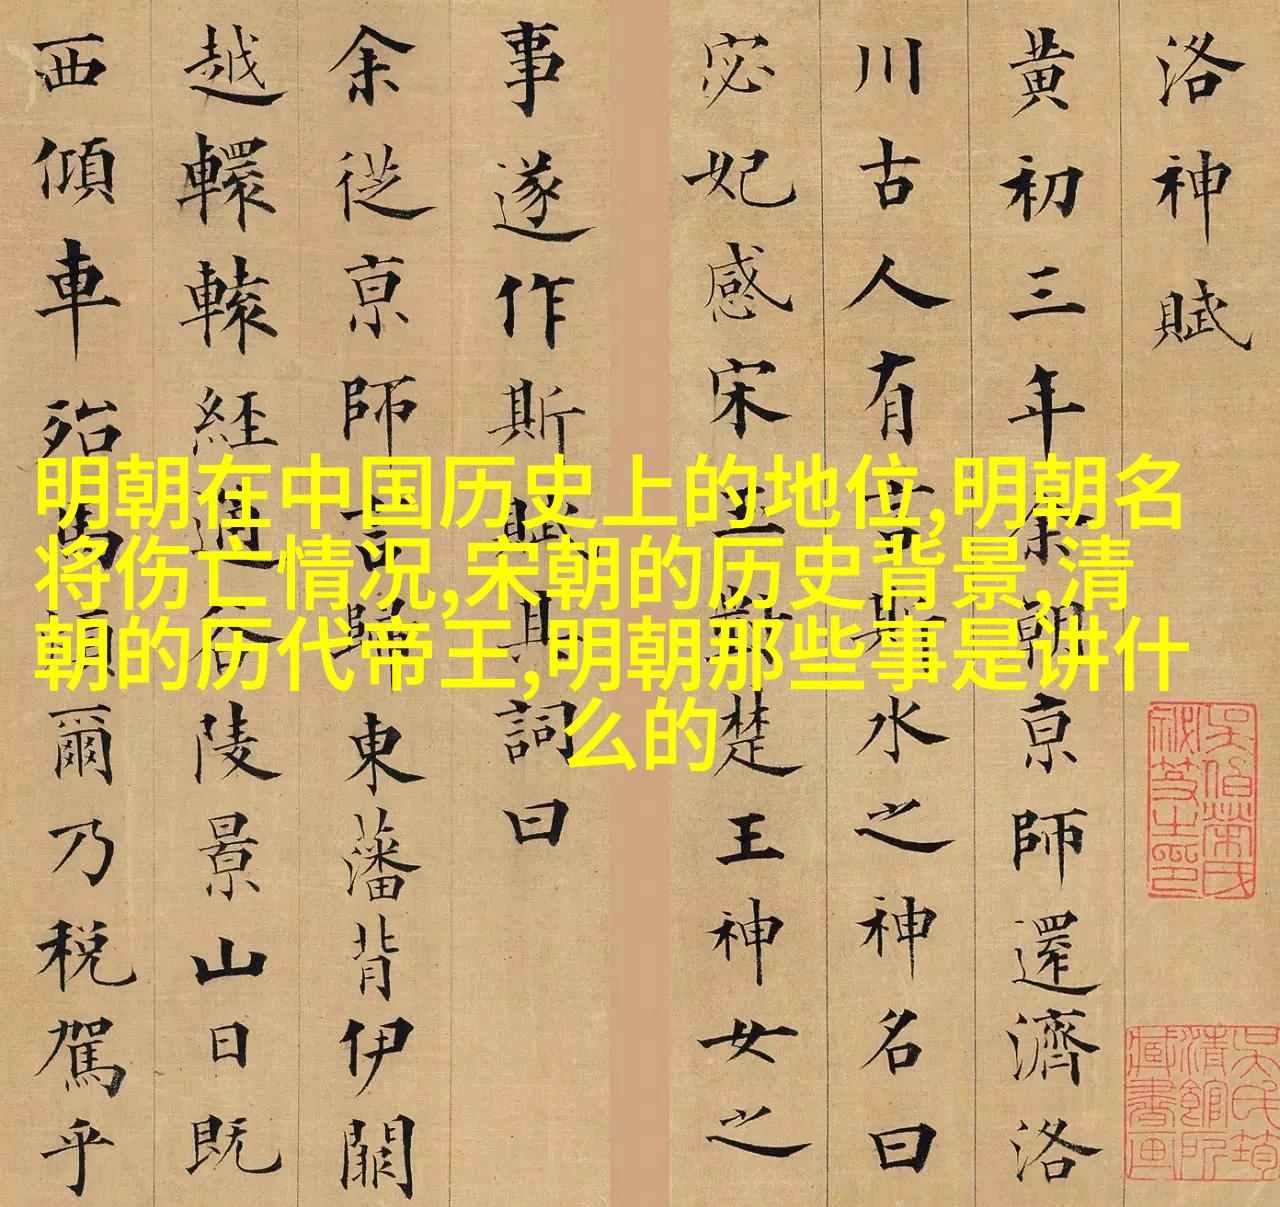 洛神賦
黄初三年余朝京師還濟洛
川古人有言斯水之神名曰
宓妃感宋玉對楚王神女之
事遂作斯賦其詞曰
余從京師言歸東藩背伊闕
越轘轅經通谷陵景山日既
西傾車殆馬煩爾乃稅駕乎
明朝在中国历史上的地位,明朝名
将伤亡情况,宋朝的历史背景,清
朝的历代帝王,明朝那些事是讲什
么的
吳氏筠
清館所
藏書画